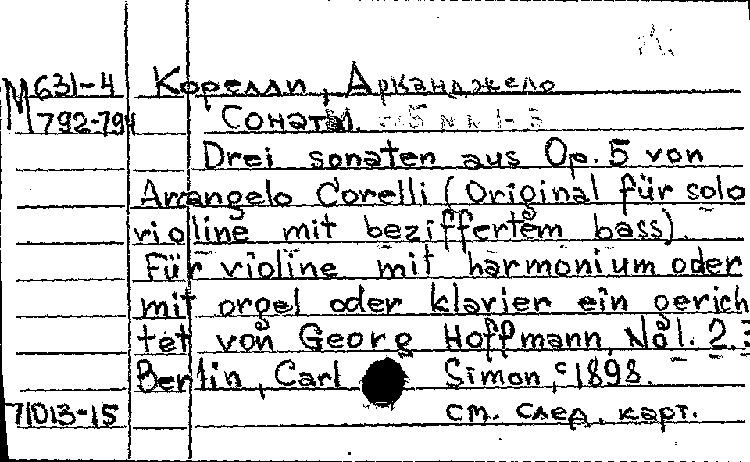 М 631-4 Корелли, Арканджело
792-794 Сонаты.
Drei sonaten aus Op. 5 von
Arcangelo Corelli (Original für solo
violine mit beziffertem bass)
Für violine mit harmonium oder
mit orgel oder klavier ein gerich
tet von Georg Hoffmann, No 1. 2. 3
Berlin, Carl Simon, c 1898.
71013-15 см. след. карт.